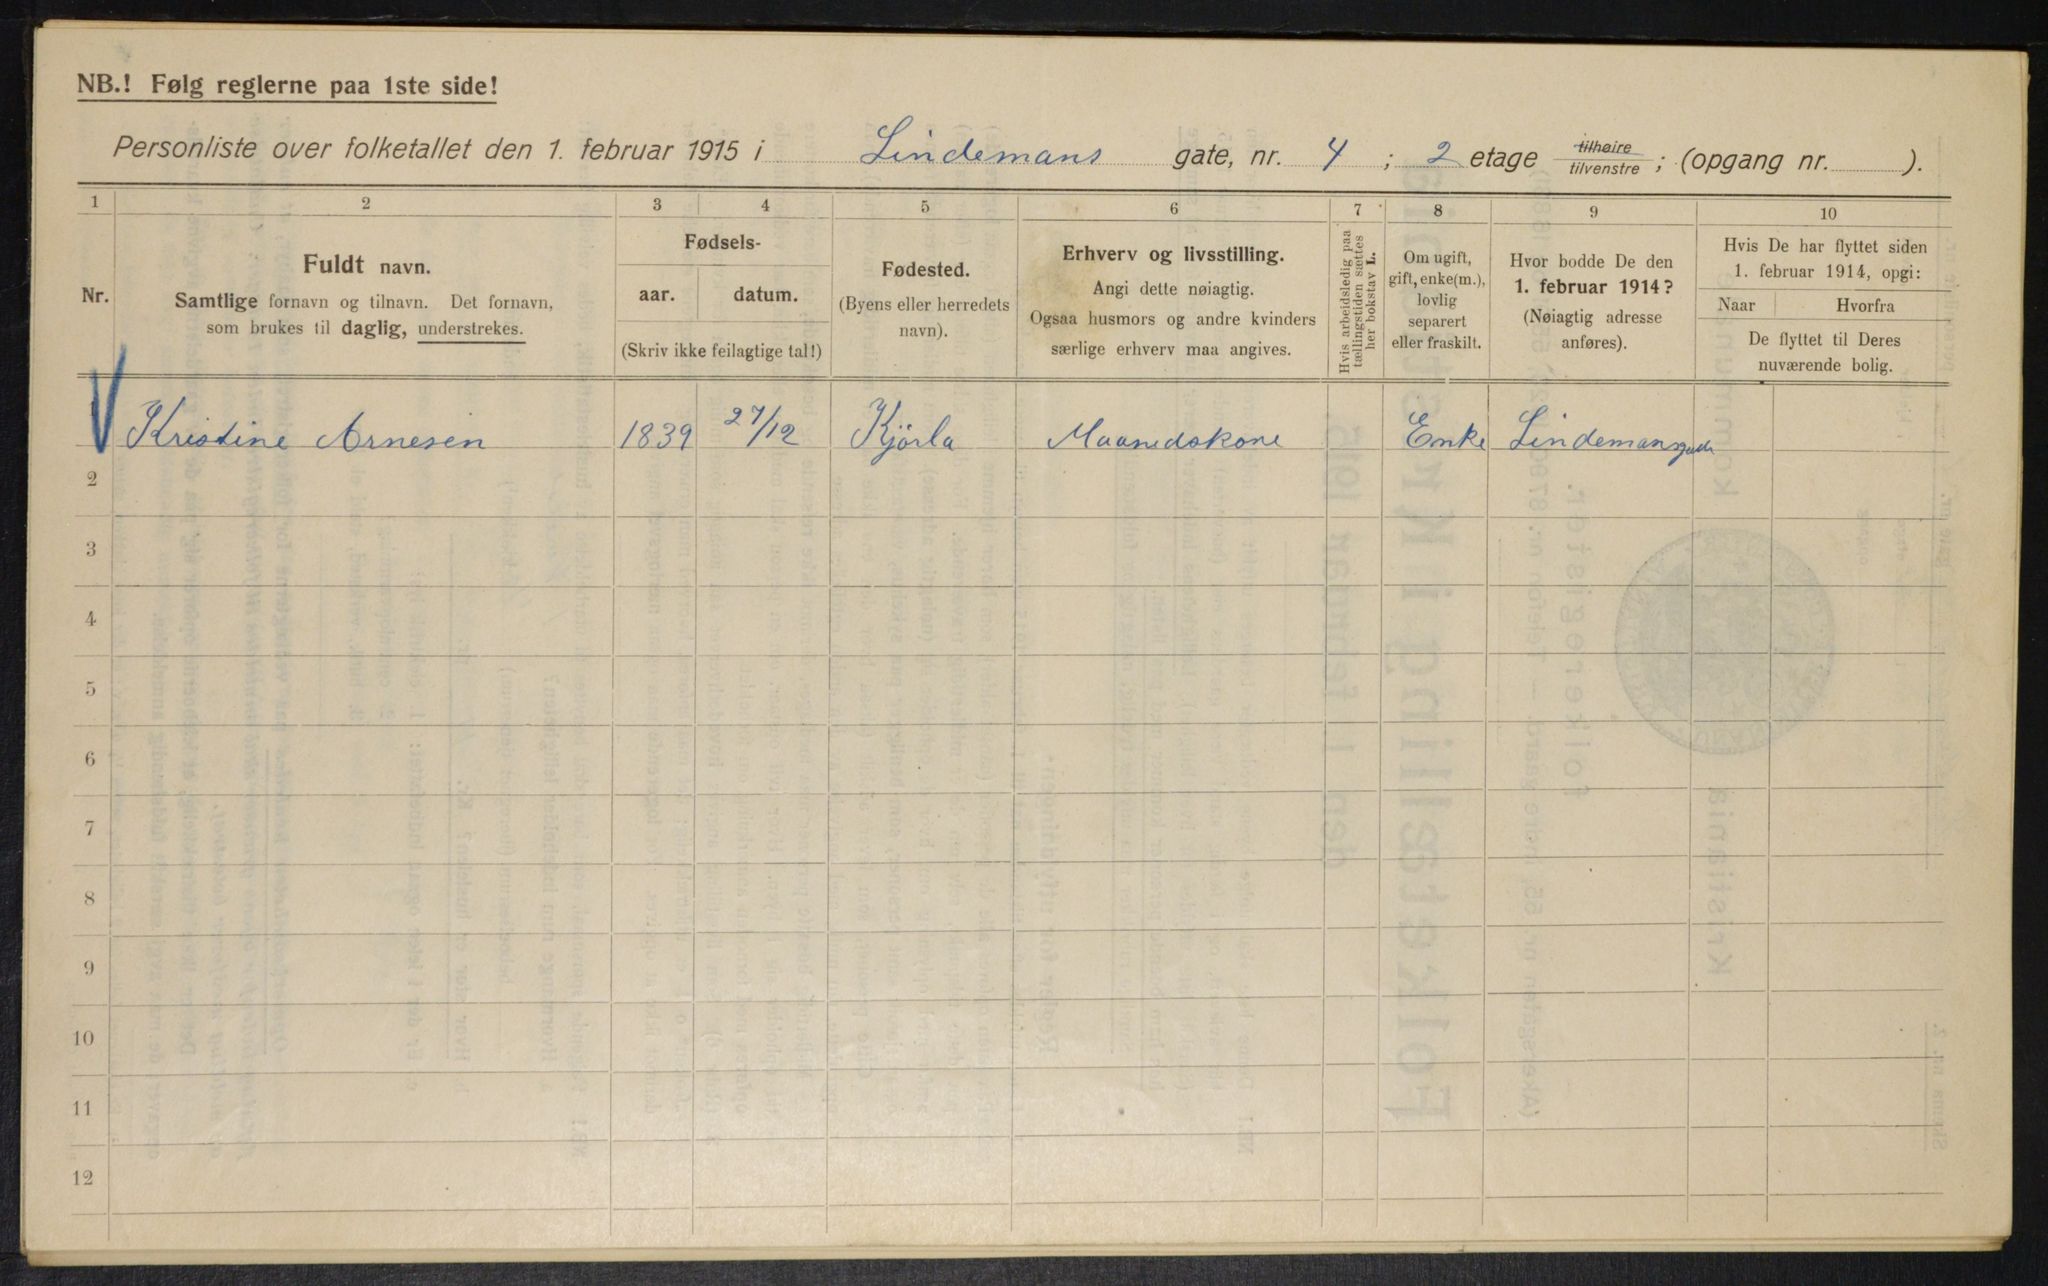 NB.! Følg reglerne paa 1ste side!
Personliste over folketallet den 1. februar 1915 i Lindemans gate, nr. 4 ; 2 etage tilhøire/tilvenstre ; (opgang nr. ).
1 2 3 4 5 6 7 8 9 10
Nr.
Fuldt navn.
Samtlige fornavn og tilnavn. Det fornavn,
som brukes til daglig, understrekes.
Fødsels-
aar. datum.
(Skriv ikke feilagtige tal!)
Fødested.
(Byens eller herredets
navn).
Erhverv og livsstilling.
Angi dette nøiagtig.
Ogsaa husmors og andre kvinders
særlige erhverv maa angives.
Hvis arbeidsledig paa
tællingstiden sættes
her bokstav L.
Om ugift,
gift, enke(m.),
lovlig
separert
eller fraskilt.
Hvor bodde De den
1. februar 1914?
(Nøiagtig adresse
anføres).
Hvis De har flyttet siden
1. februar 1914, opgi:
Naar Hvorfra
De flyttet til Deres
nuværende bolig.
Kristine Arnesen 1839 27/12 Kjörla Maanedskone Enke Lindemansgade
2
3
4
5
6
7
8
9
10
11
12